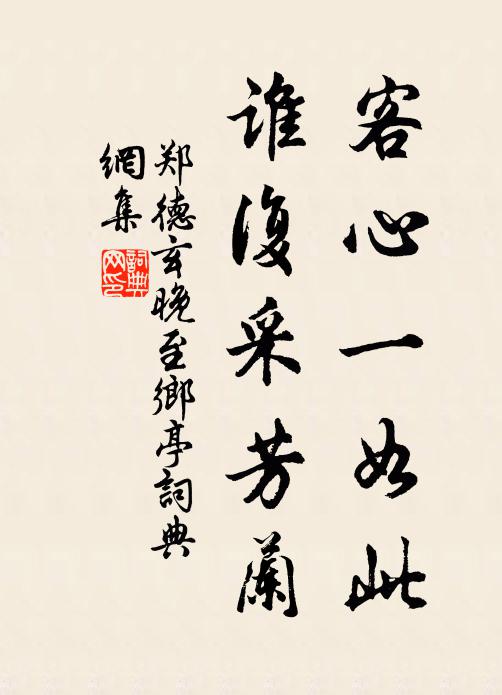 客心一如此
誰復采芳蘭
郑德玄晚至鄉亭詞典
網集
詞典
网印